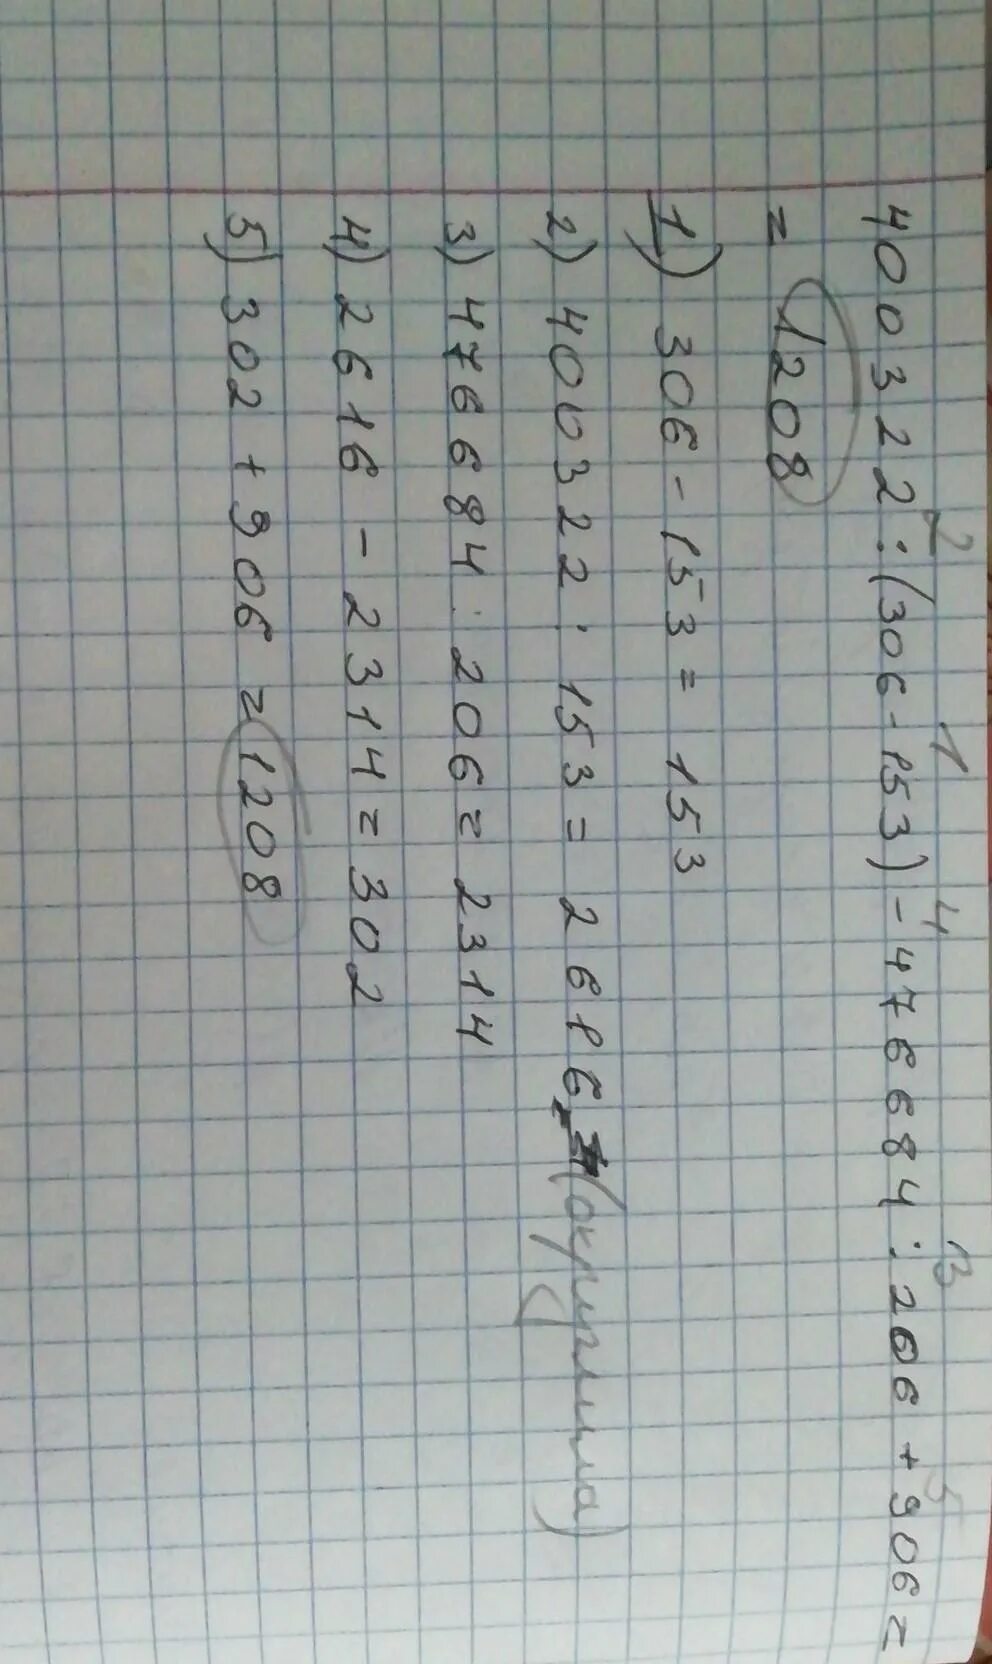 2 1 4 3 5
400322 : (306 - 153) - 476684 : 206 + 906 =
= 1208
1) 306 - 153 = 153
2) 400322 : 153 = 2616, (округлила)
3) 476684 : 206 = 2314
4) 2616 - 2314 = 302
5) 302 + 906 = 1208